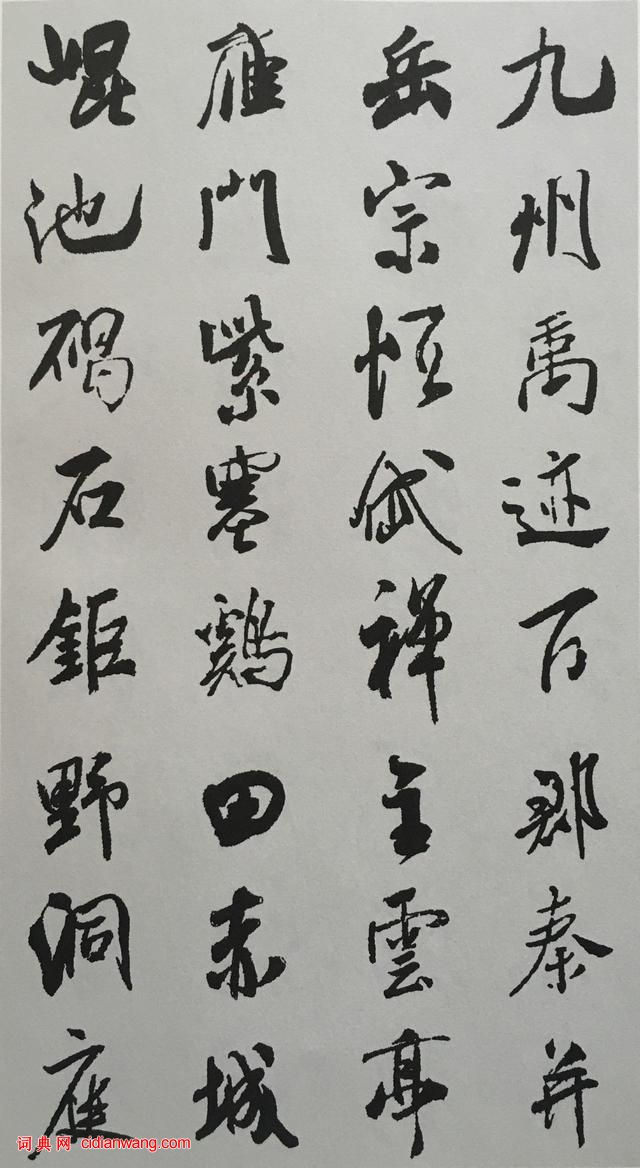 九州禹迹百郡秦并
岳宗恒岱禅主雲亭
雁門紫塞鷄田赤城
崐池碣石鉅野洞庭
词典网 cidianwang.com